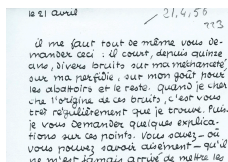 le 21 avril
21.4.56
il me faut tout de même vous de-
mander ceci : il court, depuis quinze
ans, divers bruits sur ma méchanceté,
sur ma perfidie, sur mon goût pour
les abattoirs et le reste. Quand je cher
che l'origine de ces bruits, c'est vous
très régulièrement que je trouve. Puis-
je vous demander quelques explica-
tions sur ces points. Vous savez - où
vous pouvez savoir aisément - qu'il
ne m'est jamais arrivé de mettre les